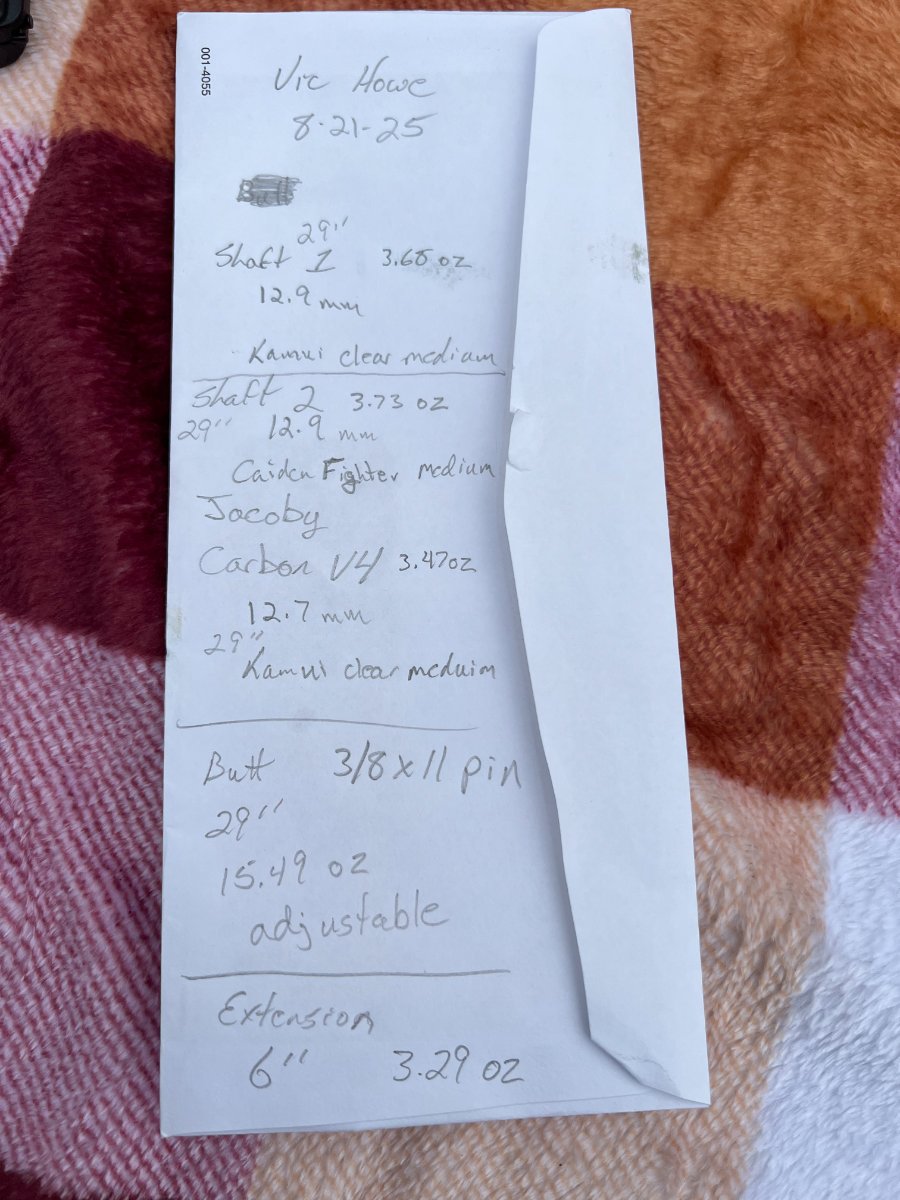 001-4055
Vic Howe
8-21-25
29"
Shaft 1 3.68 oz
12.9 mm
Kamui clear medium
Shaft 2 3.73 oz
29" 12.9 mm
Caiden Fighter medium
Jacoby
Carbon V4 3.47oz
12.7 mm
29"
Kamui clear meduim
Butt 3/8 x 11 pin
29"
15.49 oz
adjustable
Extension
6" 3.29 oz